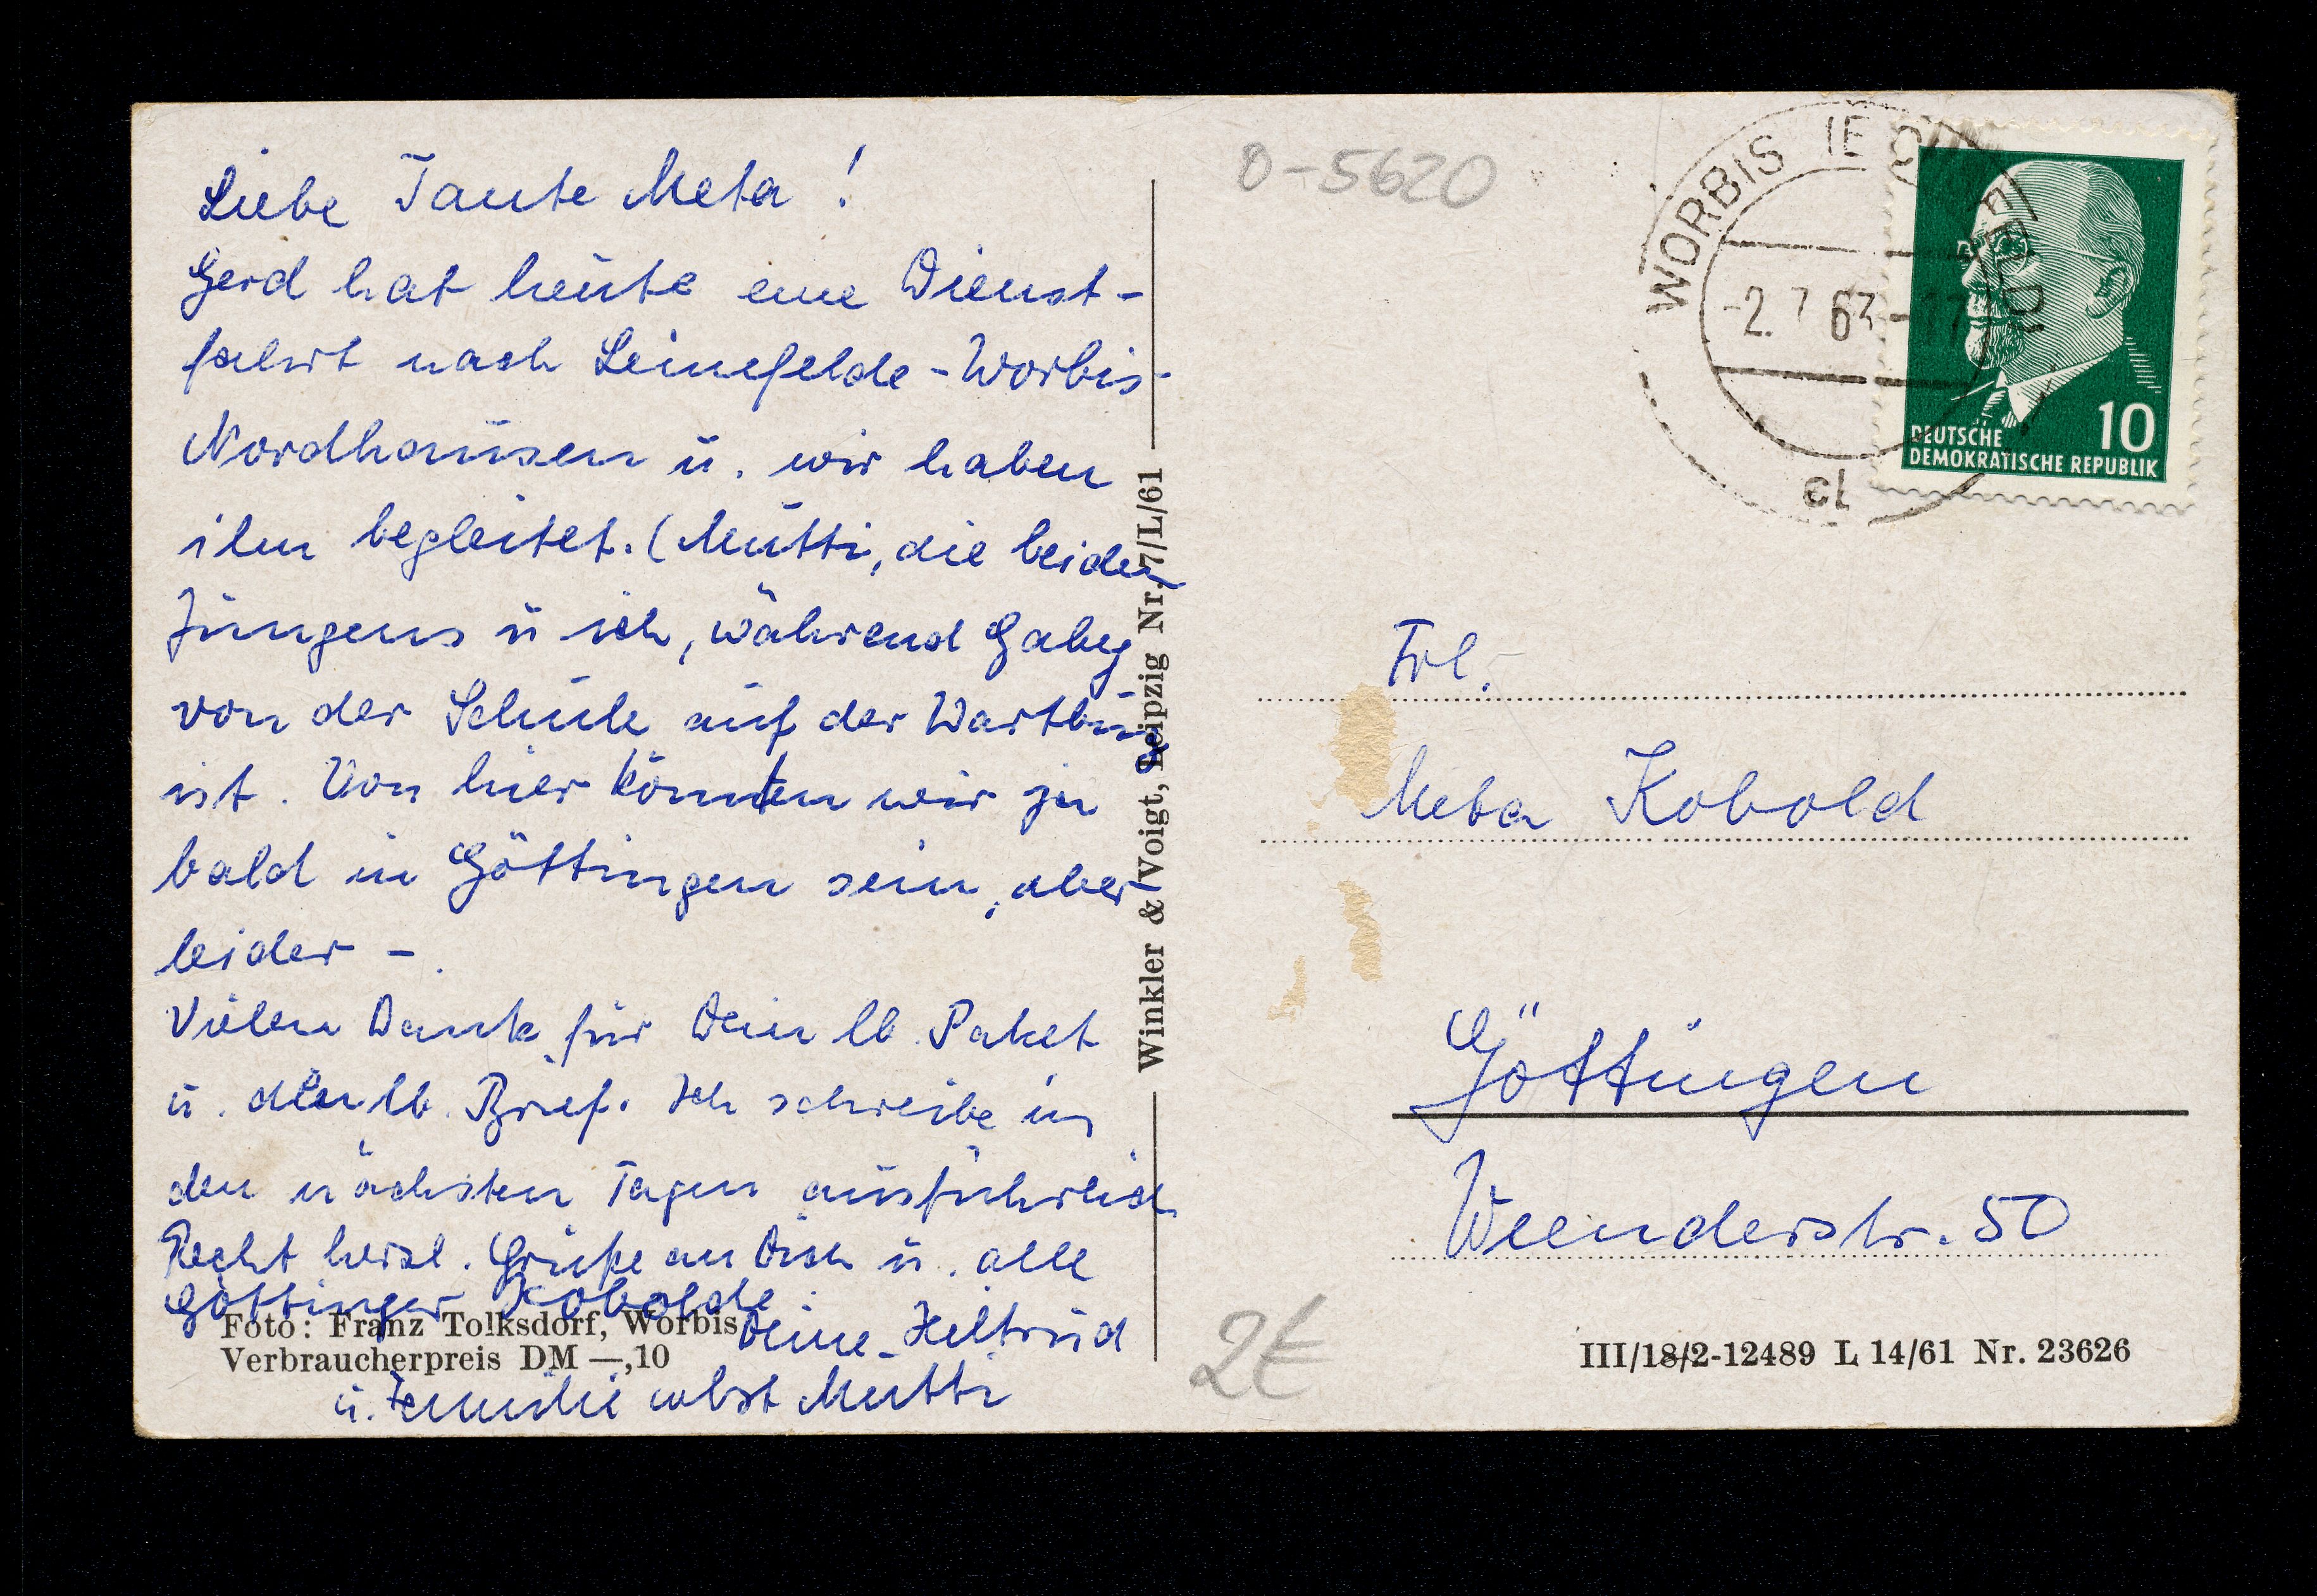 Liebe Tante Meta!
Gerd hat heute eine Dienst-
fahrt nach Leinefelde-Worbis-
Nordhausen u. wir haben
ihn begleitet. (Mutti, die beiden
Jungens u ich, während Gaby
von der Schule auf der Wartburg
ist. Von hier könnten wir ja
bald in Göttingen sein, aber
leider -.
Vielen Dank für Dein lb. Paket
u. den lb. Brief. Ich schreibe in
den nächsten Tagen ausführlich
Recht herzl. Grüße an Dich u. alle
Göttinger Kobolde.
Deine Heltrud
u. Familie nebst Mutti
Foto: Franz Tolksdorf, Worbis
Verbraucherpreis DM —,10
Winkler & Voigt, Leipzig Nr. 7/L/61
0-5620
WORBIS (EICHSFELD)
-2. 7 63-17
cl
DEUTSCHE
DEMOKRATISCHE REPUBLIK
10
Frl.
Meta Kobold
Göttingen
Weenderstr. 50
2€
III/18/2-12489 L 14/61 Nr. 23626